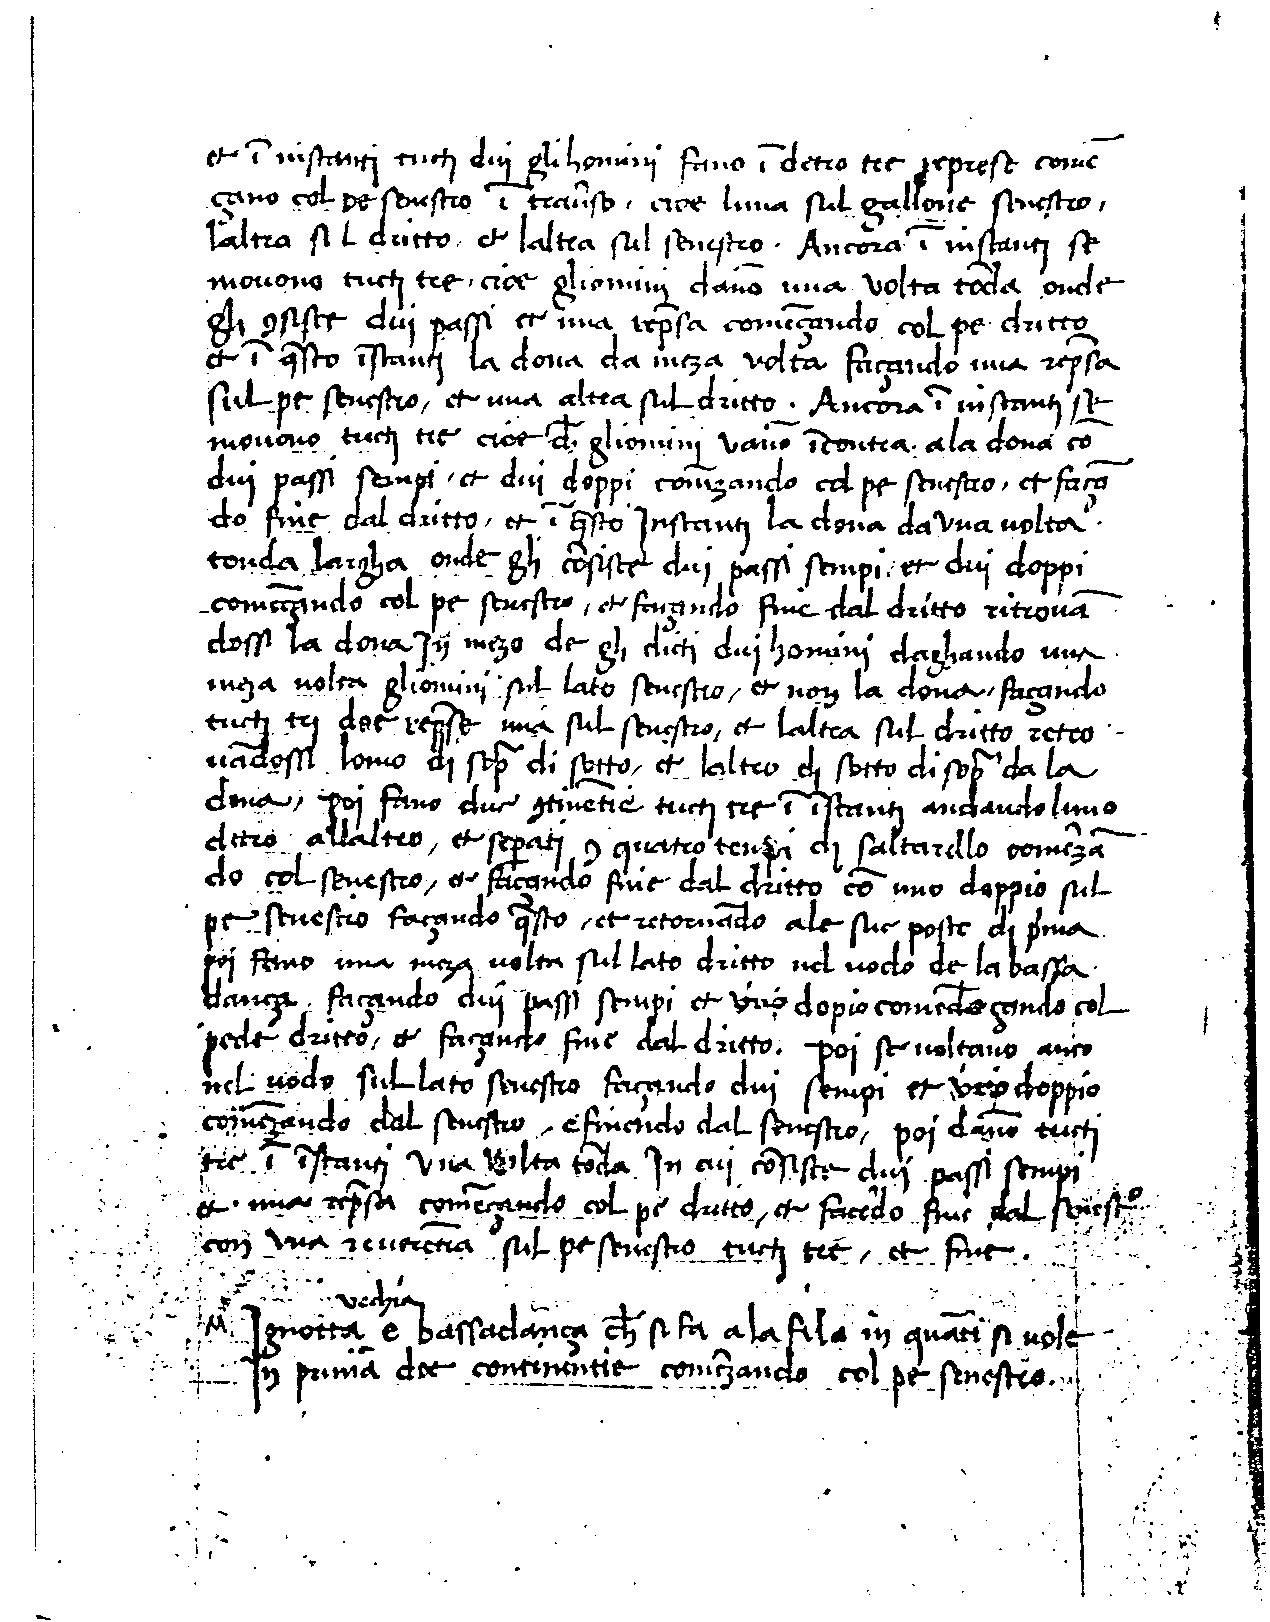 et ĩ instanti tucti dui gli homini fano ĩ detro tre represe comẽ
çano col pe senestro ĩ trauẽrso, cioe luna sul gallone senestro,
laltra sul dritto, et laltra sul senestro. Ancora ĩ instanti se
mouono tucti tre, cioe gliomini dano una volta tõda onde
gli ꝯsiste dui passi et una rep̃sa comẽçando col pe dritto
et ĩ q̃sto ĩstanti la dona da meza volta façando una rep̃sa
sul pe senestro, et una altra sul dritto. Ancora ĩ instanti se
mouono tucti tre cioe ch̃ gliomini vano ĩcontra ala dona cõ
dui passi sempi, et dui doppi comẽzando col pe senestro, et façã
do fine dal dritto, et ĩ q̃sto Instanti la dona da vna uolta
tonda largha onde gli cõsiste dui passi sempi, et dui doppi
comẽçando col pe senestro, et façando fine dal dritto ritrouã
dossi la dona In mezo de gli dicti dui homini daghando una
meza uolta gliomini sul lato senestro, et non la dona, façando
tucti tri doe rep̃se una sul senestro, et laltra sul dritto retro
uãdossi lomo di sop̃ di sotto, et laltro di sotto di sop̃ da la
dona, poi fano due ꝯtinẽtie tucti tre ĩ ĩstanti andando luno
detro allaltro, et seperati ꝯ quatro tempi di saltarello comẽzã
do col senestro, et façando fine dal dritto cõ uno doppio sul
pe senestro façando q̃sto, et retornãdo ale sue poste di p̃ma
poi fano una meza uolta sul lato dritto nel uodo de la bassa
dança, façando dui passi sempi et uno dopio comedeçando col
pede dritto, et façando fine dal dritto. poi se uoltano anco
nel uodo sul lato senestro façando dui sempi et uno doppio
comẽzando dal senestro, e finendo dal senestro, poi dano tucti
tre ĩ ĩstanti vna volta tõda In cui cõsiste dui passi sempi
et una rep̃sa comẽçando col pe dritto, et facẽdo fine dal senestro
con vna reuerẽtia sul pe senestro tucti tre, et fine.
vechia
M Ignotta e bassadança ch̃ si fa a la fila in quãti si uole
In primã doe continentie comẽzando col pe senestro.